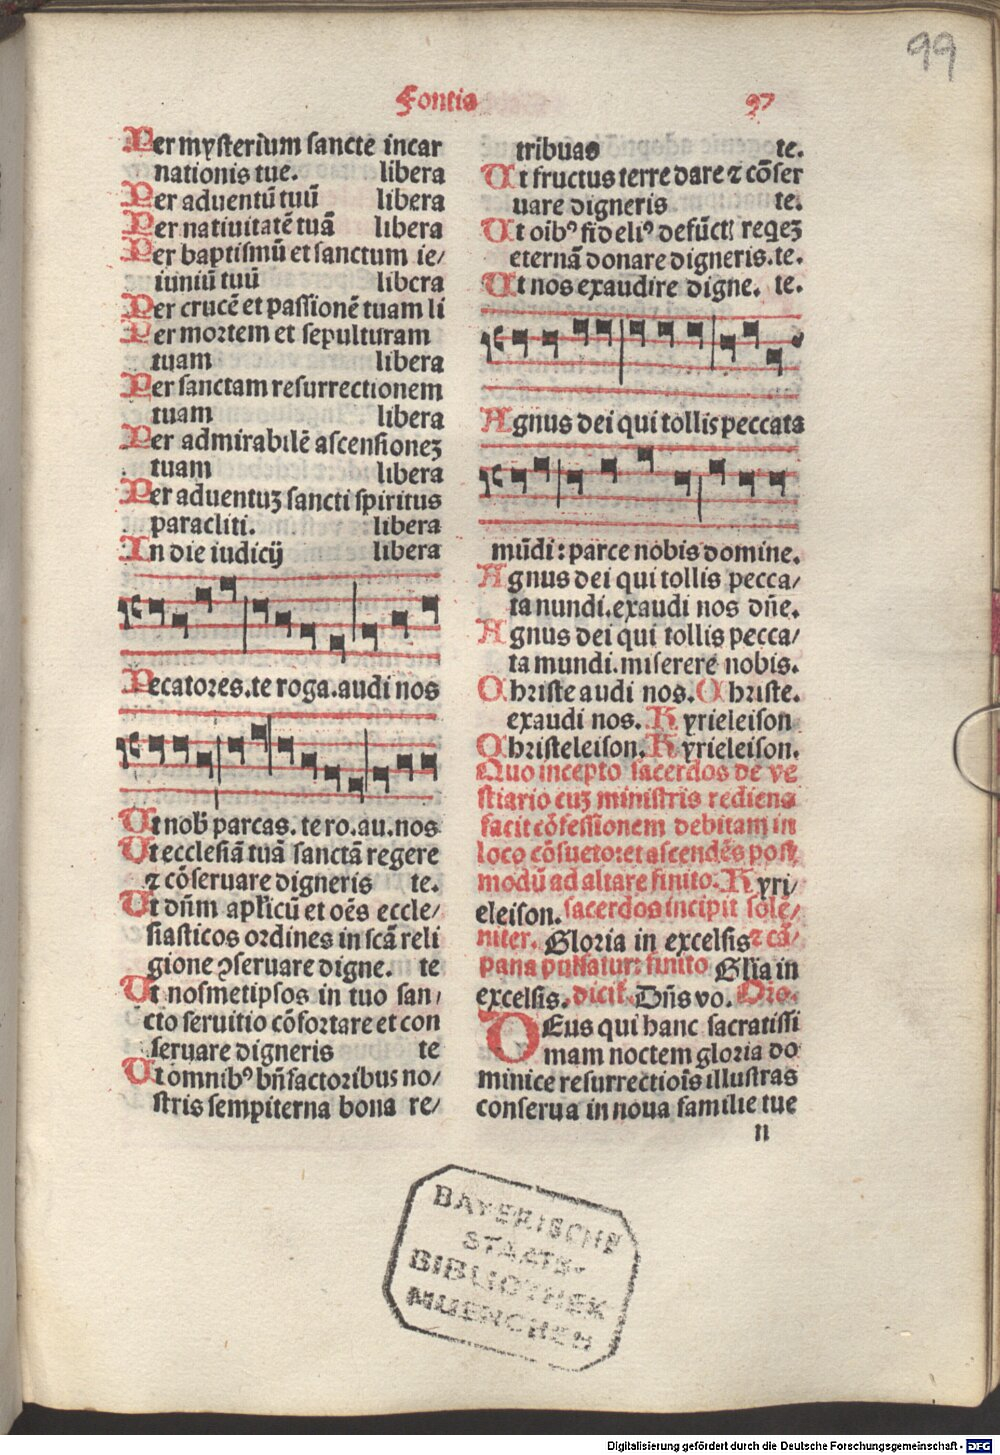 99
Fontis 97
Per mysterium sancte incar
nationis tue. libera
Per aduentū tuū libera
Per natiuitatē tuā libera
Per baptismū et sanctum ie/
iuniū tuū libera
Per crucē et passionē tuam li
Per mortem et sepulturam
tuam libera
Per sanctam resurrectionem
tuam libera
Per admirabilē ascensioneʒ
tuam libera
Per aduentuʒ sancti spiritus
paracliti. libera
In die iudicij libera
Pecatores. te roga. audi nos
Ut nob̄ parcas. te ro. au. nos
Ut ecclesiā tuā sanctā regere
⁊ cōseruare digneris te.
Ut dn̄m apl̄icū et oēs eccle/
siasticos ordines in scā reli
gione ꝯseruare digne. te
Ut nosmetipsos in tuo san/
cto seruitio cōfortare et con
seruare digneris te
Ut omnibꝰ bn̄factoribus no/
stris sempiterna bona re/
tribuas te.
Ut fructus terre dare ⁊ cōser
uare digneris te.
Ut oibꝰ fideliꝰ defūct. reqeʒ
eternā donare digneris. te.
Ut nos exaudire digne. te.
Agnus dei qui tollis peccata
mūdi: parce nobis domine.
Agnus dei qui tollis pecca/
ta nundi. exaudi nos dn̄e.
Agnus dei qui tollis pecca/
ta mundi. miserere nobis.
Christe audi nos. Christe.
exaudi nos. Kyrieleison
Christeleison. Kyrieleison.
Quo incepto sacerdos de ve
stiario cuʒ ministris rediens
facit cōfessionem debitam in
loco cōsueto: et ascendēs post
modū ad altare finito. Kyri/
eleison. sacerdos incipit sole/
niter. Gloria in excelsis ⁊ cā/
pana pulsatur: finito Gl̄ia in
excelsis. dicit. Dn̄s vo. Oro.
DEus qui hanc sacratissi
mam noctem gloria do
minice resurrectiōis illustras
conserua in noua familie tue
n
BAYERISCHE
STAATS-
BIBLIOTHEK
MUENCHEN
Digitalisierung gefördert durch die Deutsche Forschungsgemeinschaft - DFG